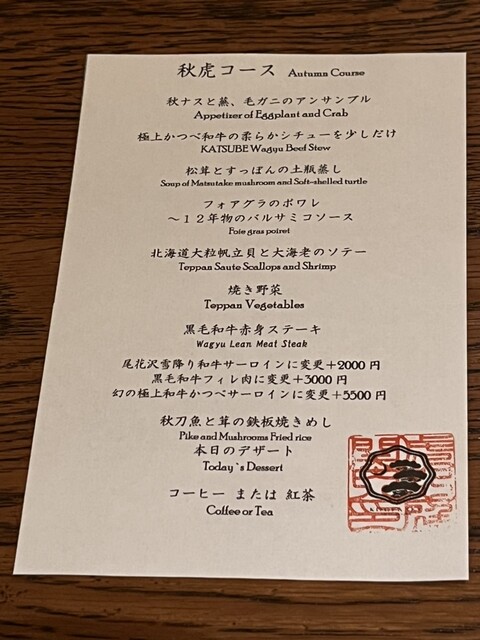 秋虎コース Autumn Course
秋ナスと蒸、毛ガニのアンサンブル
Appetizer of Eggplant and Crab
極上かつべ和牛の柔らかシチューを少しだけ
KATSUBE Wagyu Beef Stew
松茸とすっぽんの土瓶蒸し
Soup of Matsutake mushroom and Soft-shelled turtle
フォアグラのポワレ
～１２年物のバルサミコソース
Foie gras poiret
北海道大粒帆立貝と大海老のソテー
Teppan Saute Scallops and Shrimp
焼き野菜
Teppan Vegetables
黒毛和牛赤身ステーキ
Wagyu Lean Meat Steak
尾花沢雪降り和牛サーロインに変更＋2000 円
黒毛和牛フィレ肉に変更＋3000 円
幻の極上和牛かつべサーロインに変更＋5500 円
秋刀魚と茸の鉄板焼きめし
Pike and Mushrooms Fried rice
本日のデザート
Today`s Dessert
コーヒー または 紅茶
Coffee or Tea